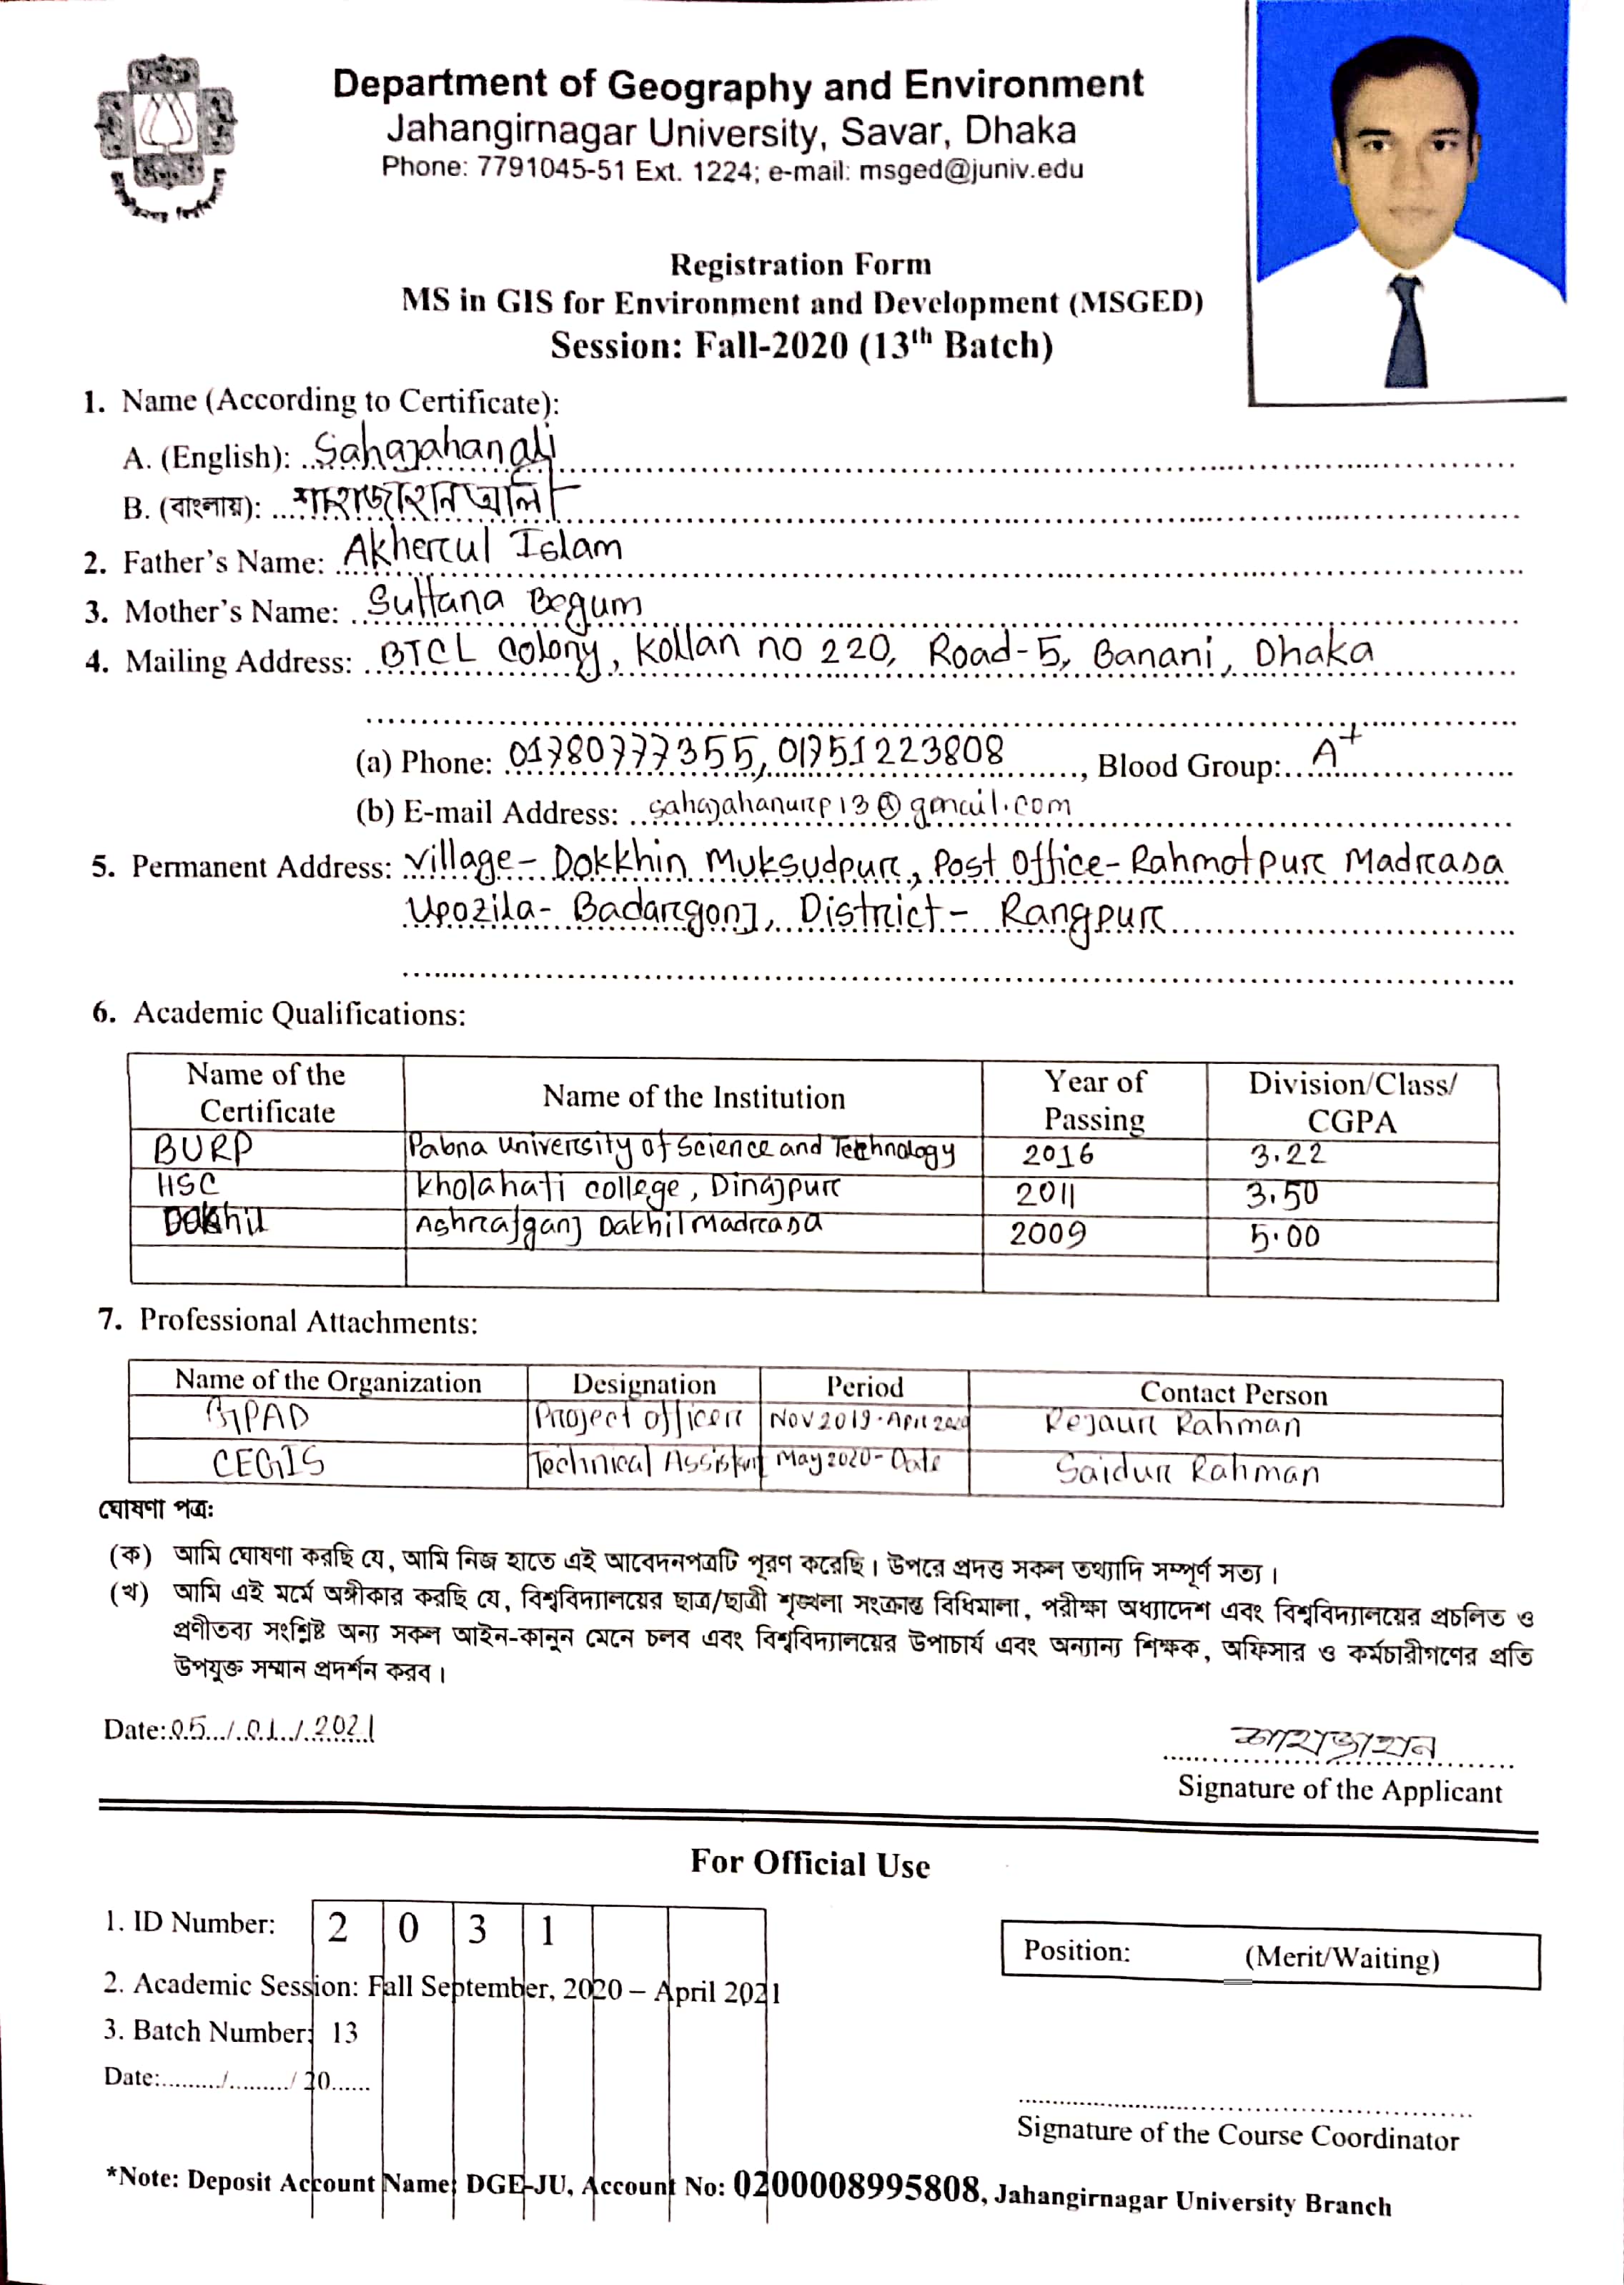 Department of Geography and Environment
Jahangirnagar University, Savar, Dhaka
Phone: 7791045-51 Ext. 1224; e-mail: msged@juniv.edu
Registration Form
MS in GIS for Environment and Development (MSGED)
Session: Fall-2020 (13th Batch)
1. Name (According to Certificate):
A. (English): Sahajahan ali
B. (বাংলায়): শাহজাহান আলি
2. Father's Name: Akherul Islam
3. Mother's Name: Sultana Begum
4. Mailing Address: BTCL Colony, Kollan no 220, Road-5, Banani, Dhaka
(a) Phone: 01780777355, 01751223808, Blood Group: A+
(b) E-mail Address: sahajahanurp13@gmail.com
5. Permanent Address: Village- Dokkhin Muksudpur, Post Office- Rahmotpur Madrasa
Upozila- Badargonj, District- Rangpur
6. Academic Qualifications:
Name of the Certificate Name of the Institution Year of Passing Division/Class/ CGPA
BURP Pabna University of Science and Technology 2016 3.22
HSC Kholahati college, Dinajpur 2011 3.50
Dakhil Ashrafganj Dakhil Madrasa 2009 5.00
7. Professional Attachments:
Name of the Organization Designation Period Contact Person
Project officer Nov 2019-April 2020 Rejaur Rahman
CEGIS Technical Assistant May 2020- Date Saidur Rahman
ঘোষণা পত্র:
(ক) আমি ঘোষণা করছি যে, আমি নিজ হাতে এই আবেদনপত্রটি পূরণ করেছি। উপরে প্রদত্ত সকল তথ্যাদি সম্পূর্ণ সত্য।
(খ) আমি এই মর্মে অঙ্গীকার করছি যে, বিশ্ববিদ্যালয়ের ছাত্র/ছাত্রী শৃঙ্খলা সংক্রান্ত বিধিমালা, পরীক্ষা অধ্যাদেশ এবং বিশ্ববিদ্যালয়ের প্রচলিত ও
প্রণীতব্য সংশ্লিষ্ট অন্য সকল আইন-কানুন মেনে চলব এবং বিশ্ববিদ্যালয়ের উপাচার্য এবং অন্যান্য শিক্ষক, অফিসার ও কর্মচারীগণের প্রতি
উপযুক্ত সম্মান প্রদর্শন করব।
Date: 05/01/2021
শাহজাহান
Signature of the Applicant
For Official Use
1. ID Number: 2 0 3 1
Position: (Merit/Waiting)
2. Academic Session: Fall September, 2020 – April 2021
3. Batch Number: 13
Date:........./........./ 20......
Signature of the Course Coordinator
*Note: Deposit Account Name: DGE-JU, Account No: 0200008995808, Jahangirnagar University Branch